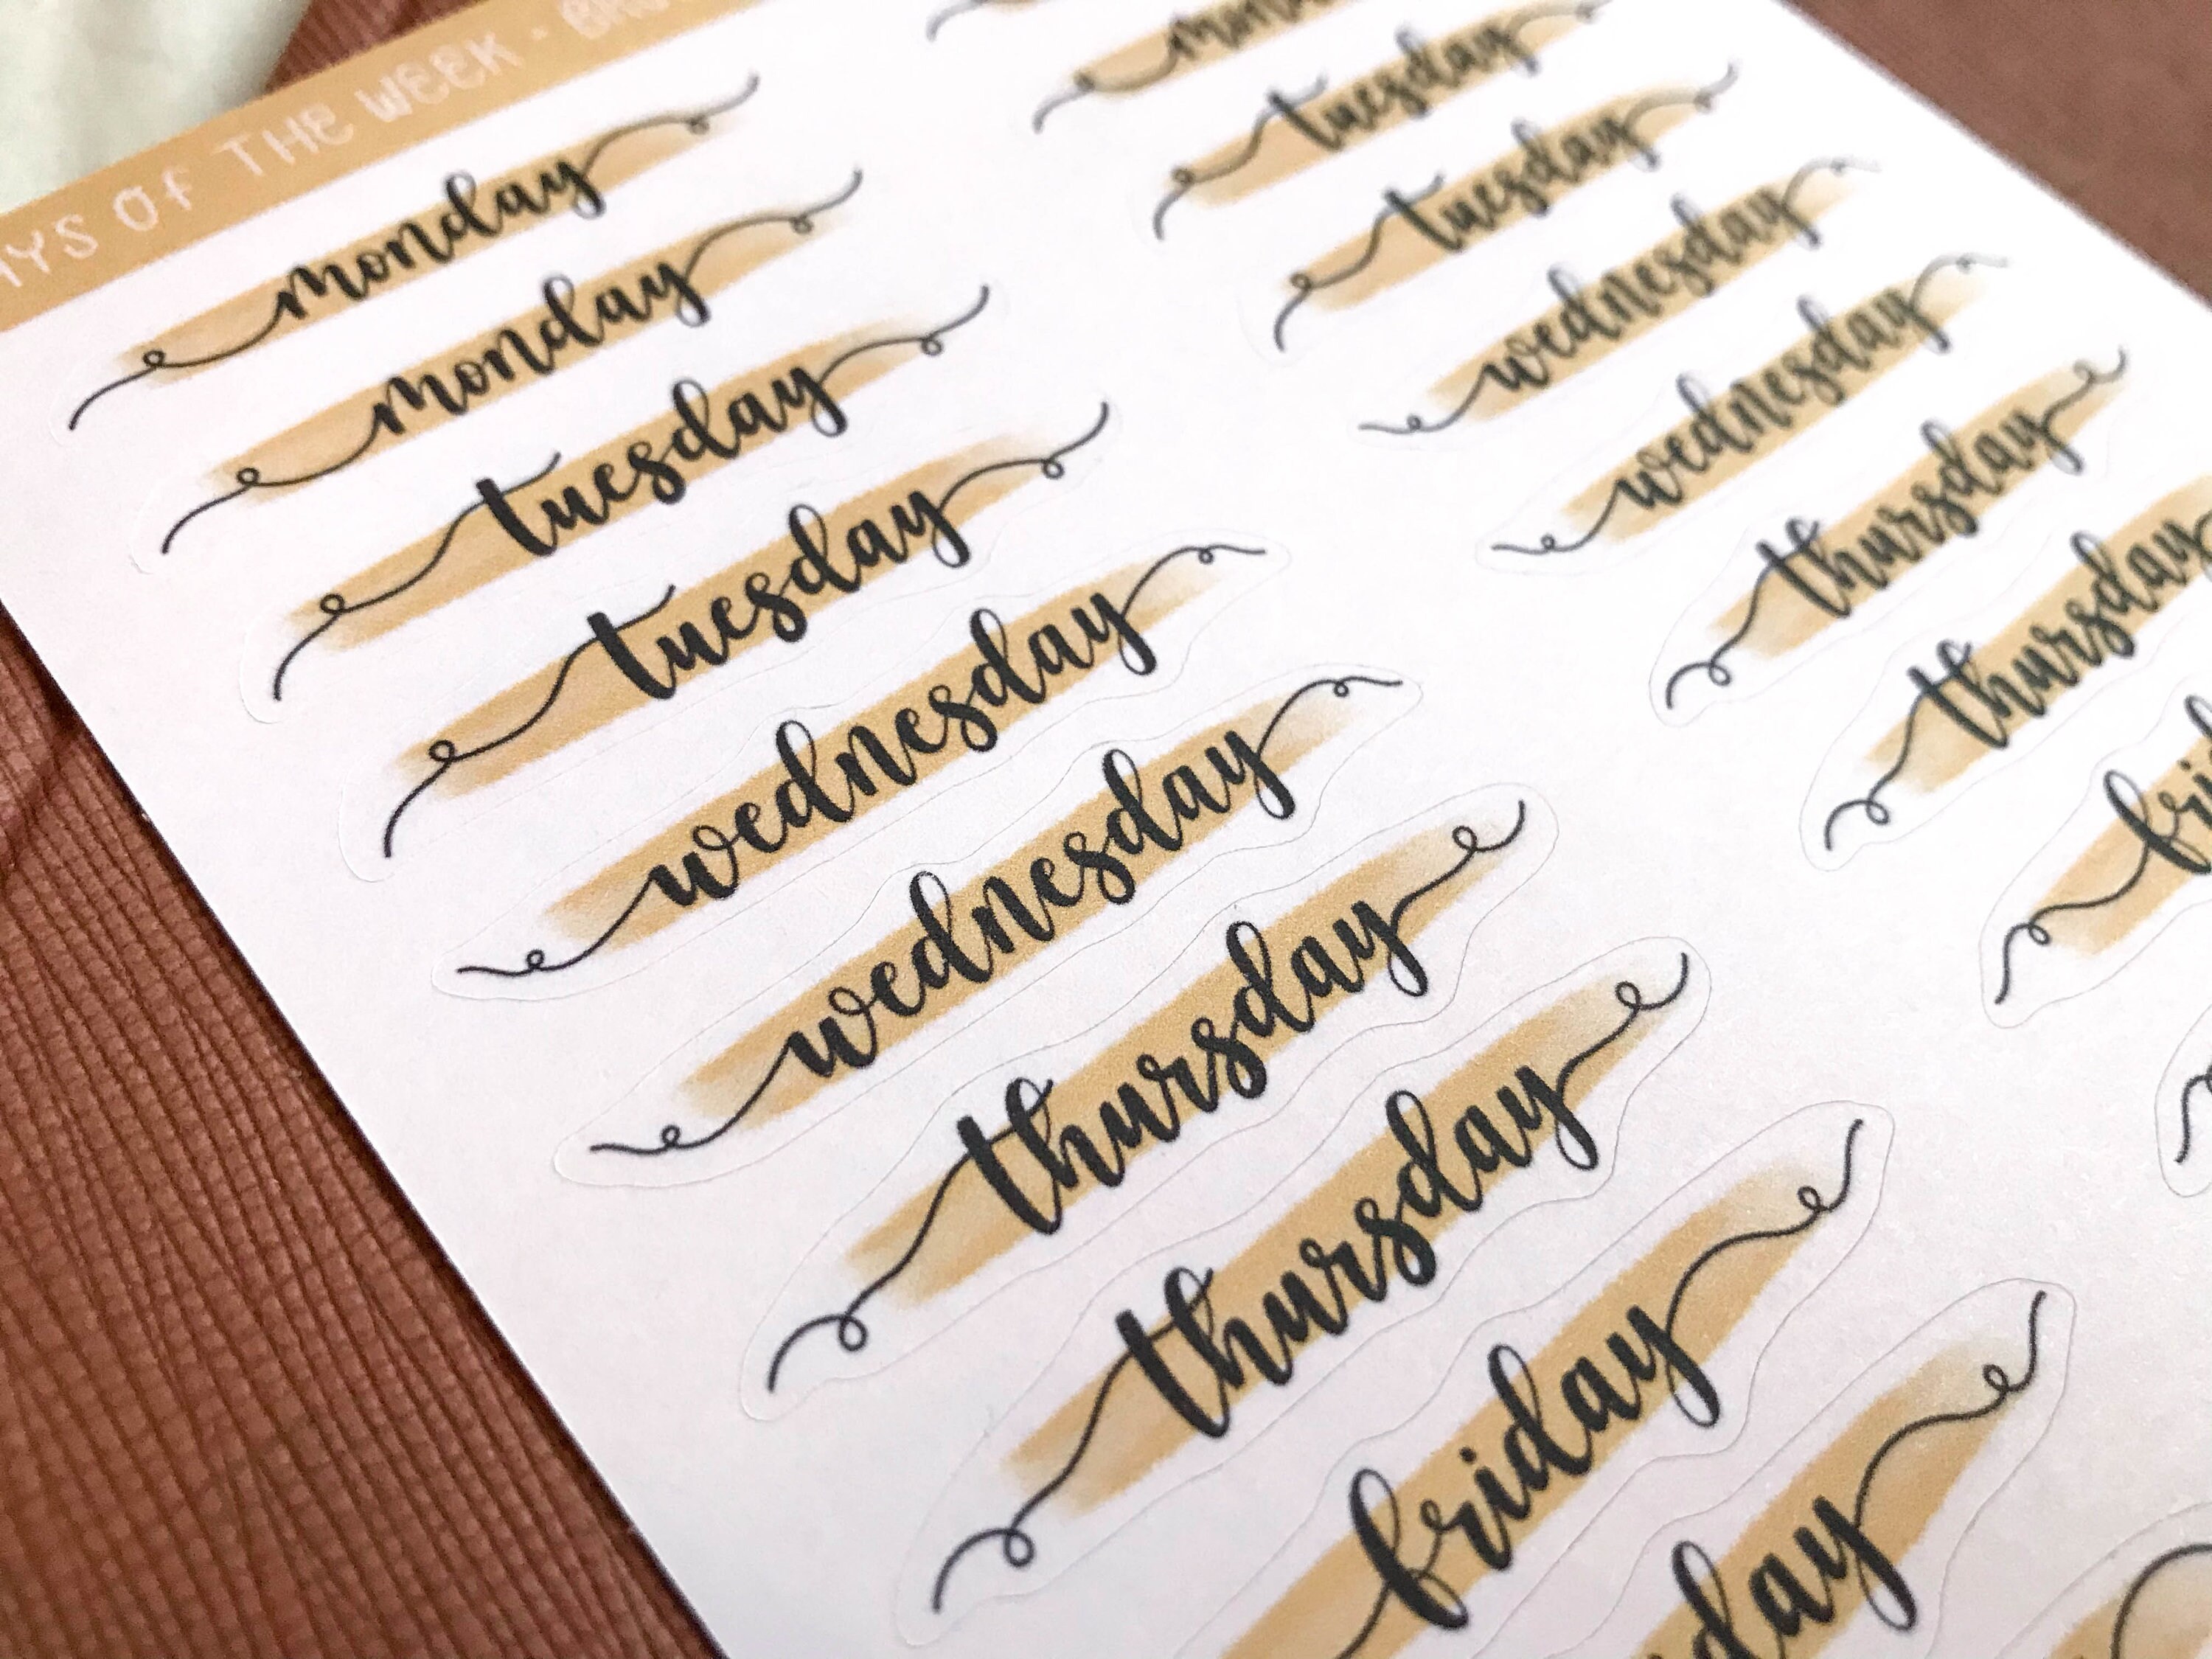 YS OF THE WEEK -
monday
monday
tuesday
tuesday
wednesday
wednesday
thursday
thursday
friday
day
tuesday
tuesday
wednesday
wednesday
thursday
thursday